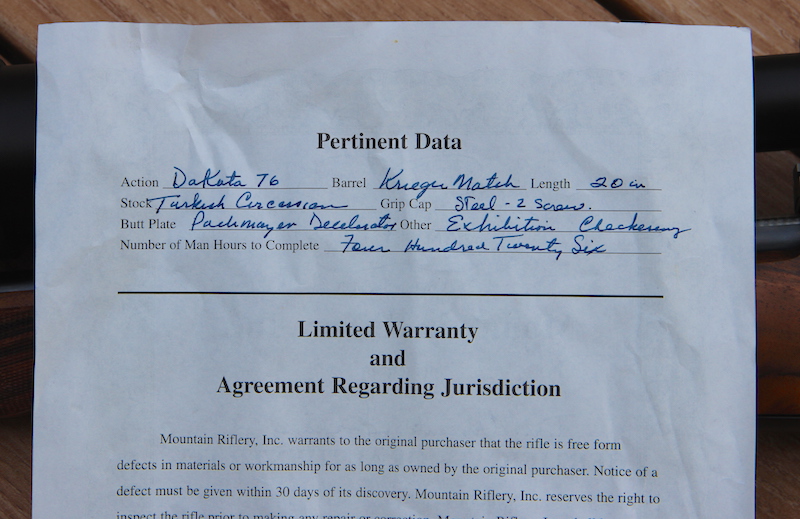 Pertinent Data
Action Dakota 76 Barrel Krieger Match Length 20 in
Stock Turkish Circassian Grip Cap Steel - 2 Screw.
Butt Plate Pachmayer Decelerator Other Exhibition Checkering
Number of Man Hours to Complete Four Hundred Twenty Six
Limited Warranty
and
Agreement Regarding Jurisdiction
Mountain Riflery, Inc. warrants to the original purchaser that the rifle is free form
defects in materials or workmanship for as long as owned by the original purchaser. Notice of a
defect must be given within 30 days of its discovery. Mountain Riflery, Inc. reserves the right to
inspect the rifle prior to making any repair or correction. Mountain